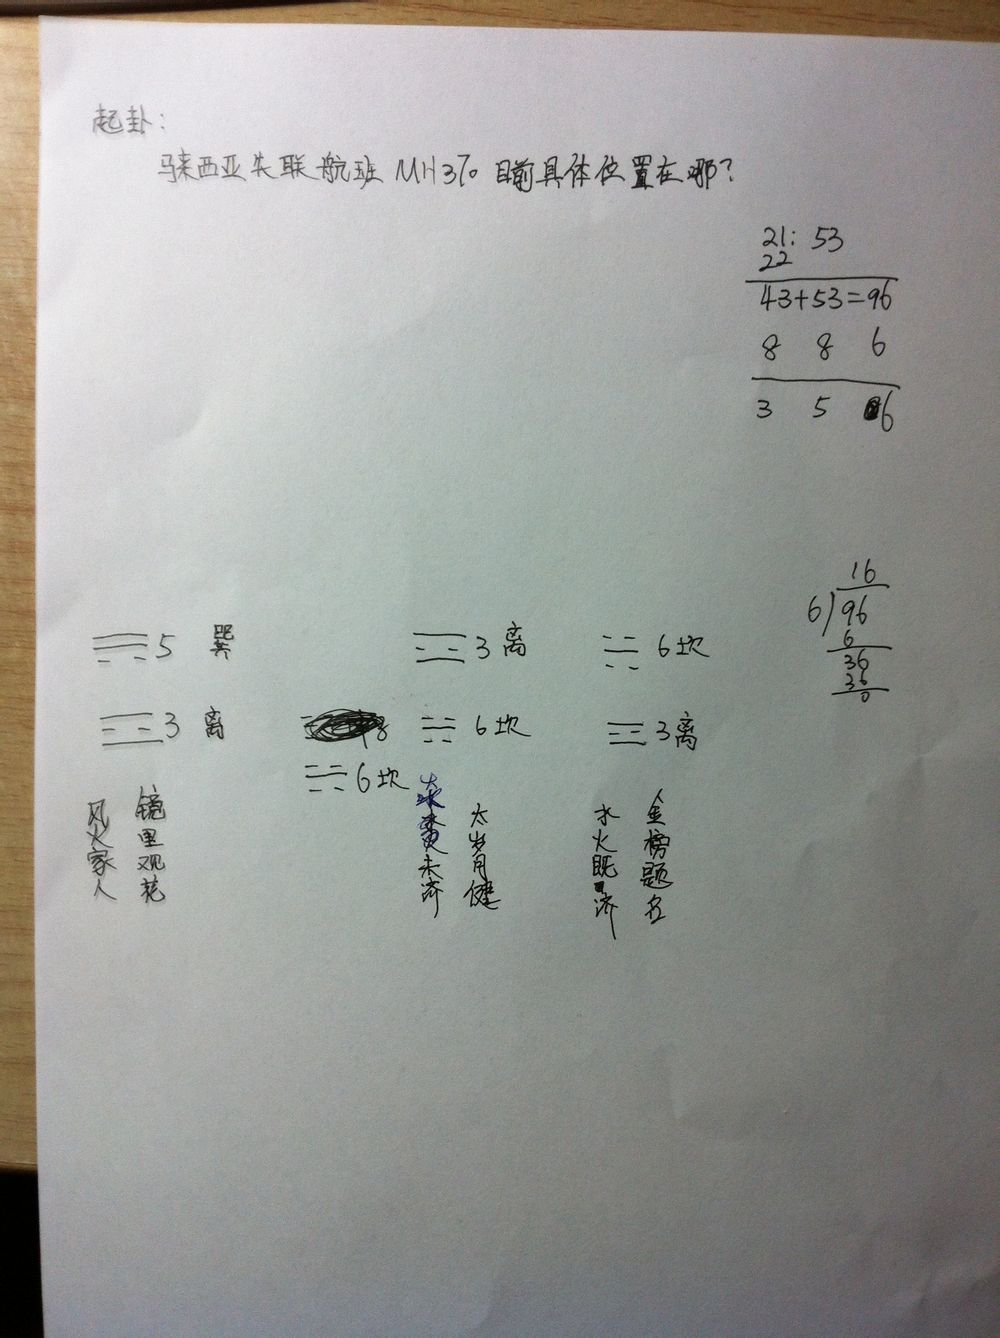 起卦:
马来西亚失联航班 MH370 目前具体位置在哪?
21: 53
22
43+53=96
8 8 6
3 5 6
16
6)96
6
36
36
0
5 巽
3 离
6 坎
3 离
6 坎
6 坎
3 离
风火家人
镜里观花
未济
太岁月健
水火既济
金榜题名